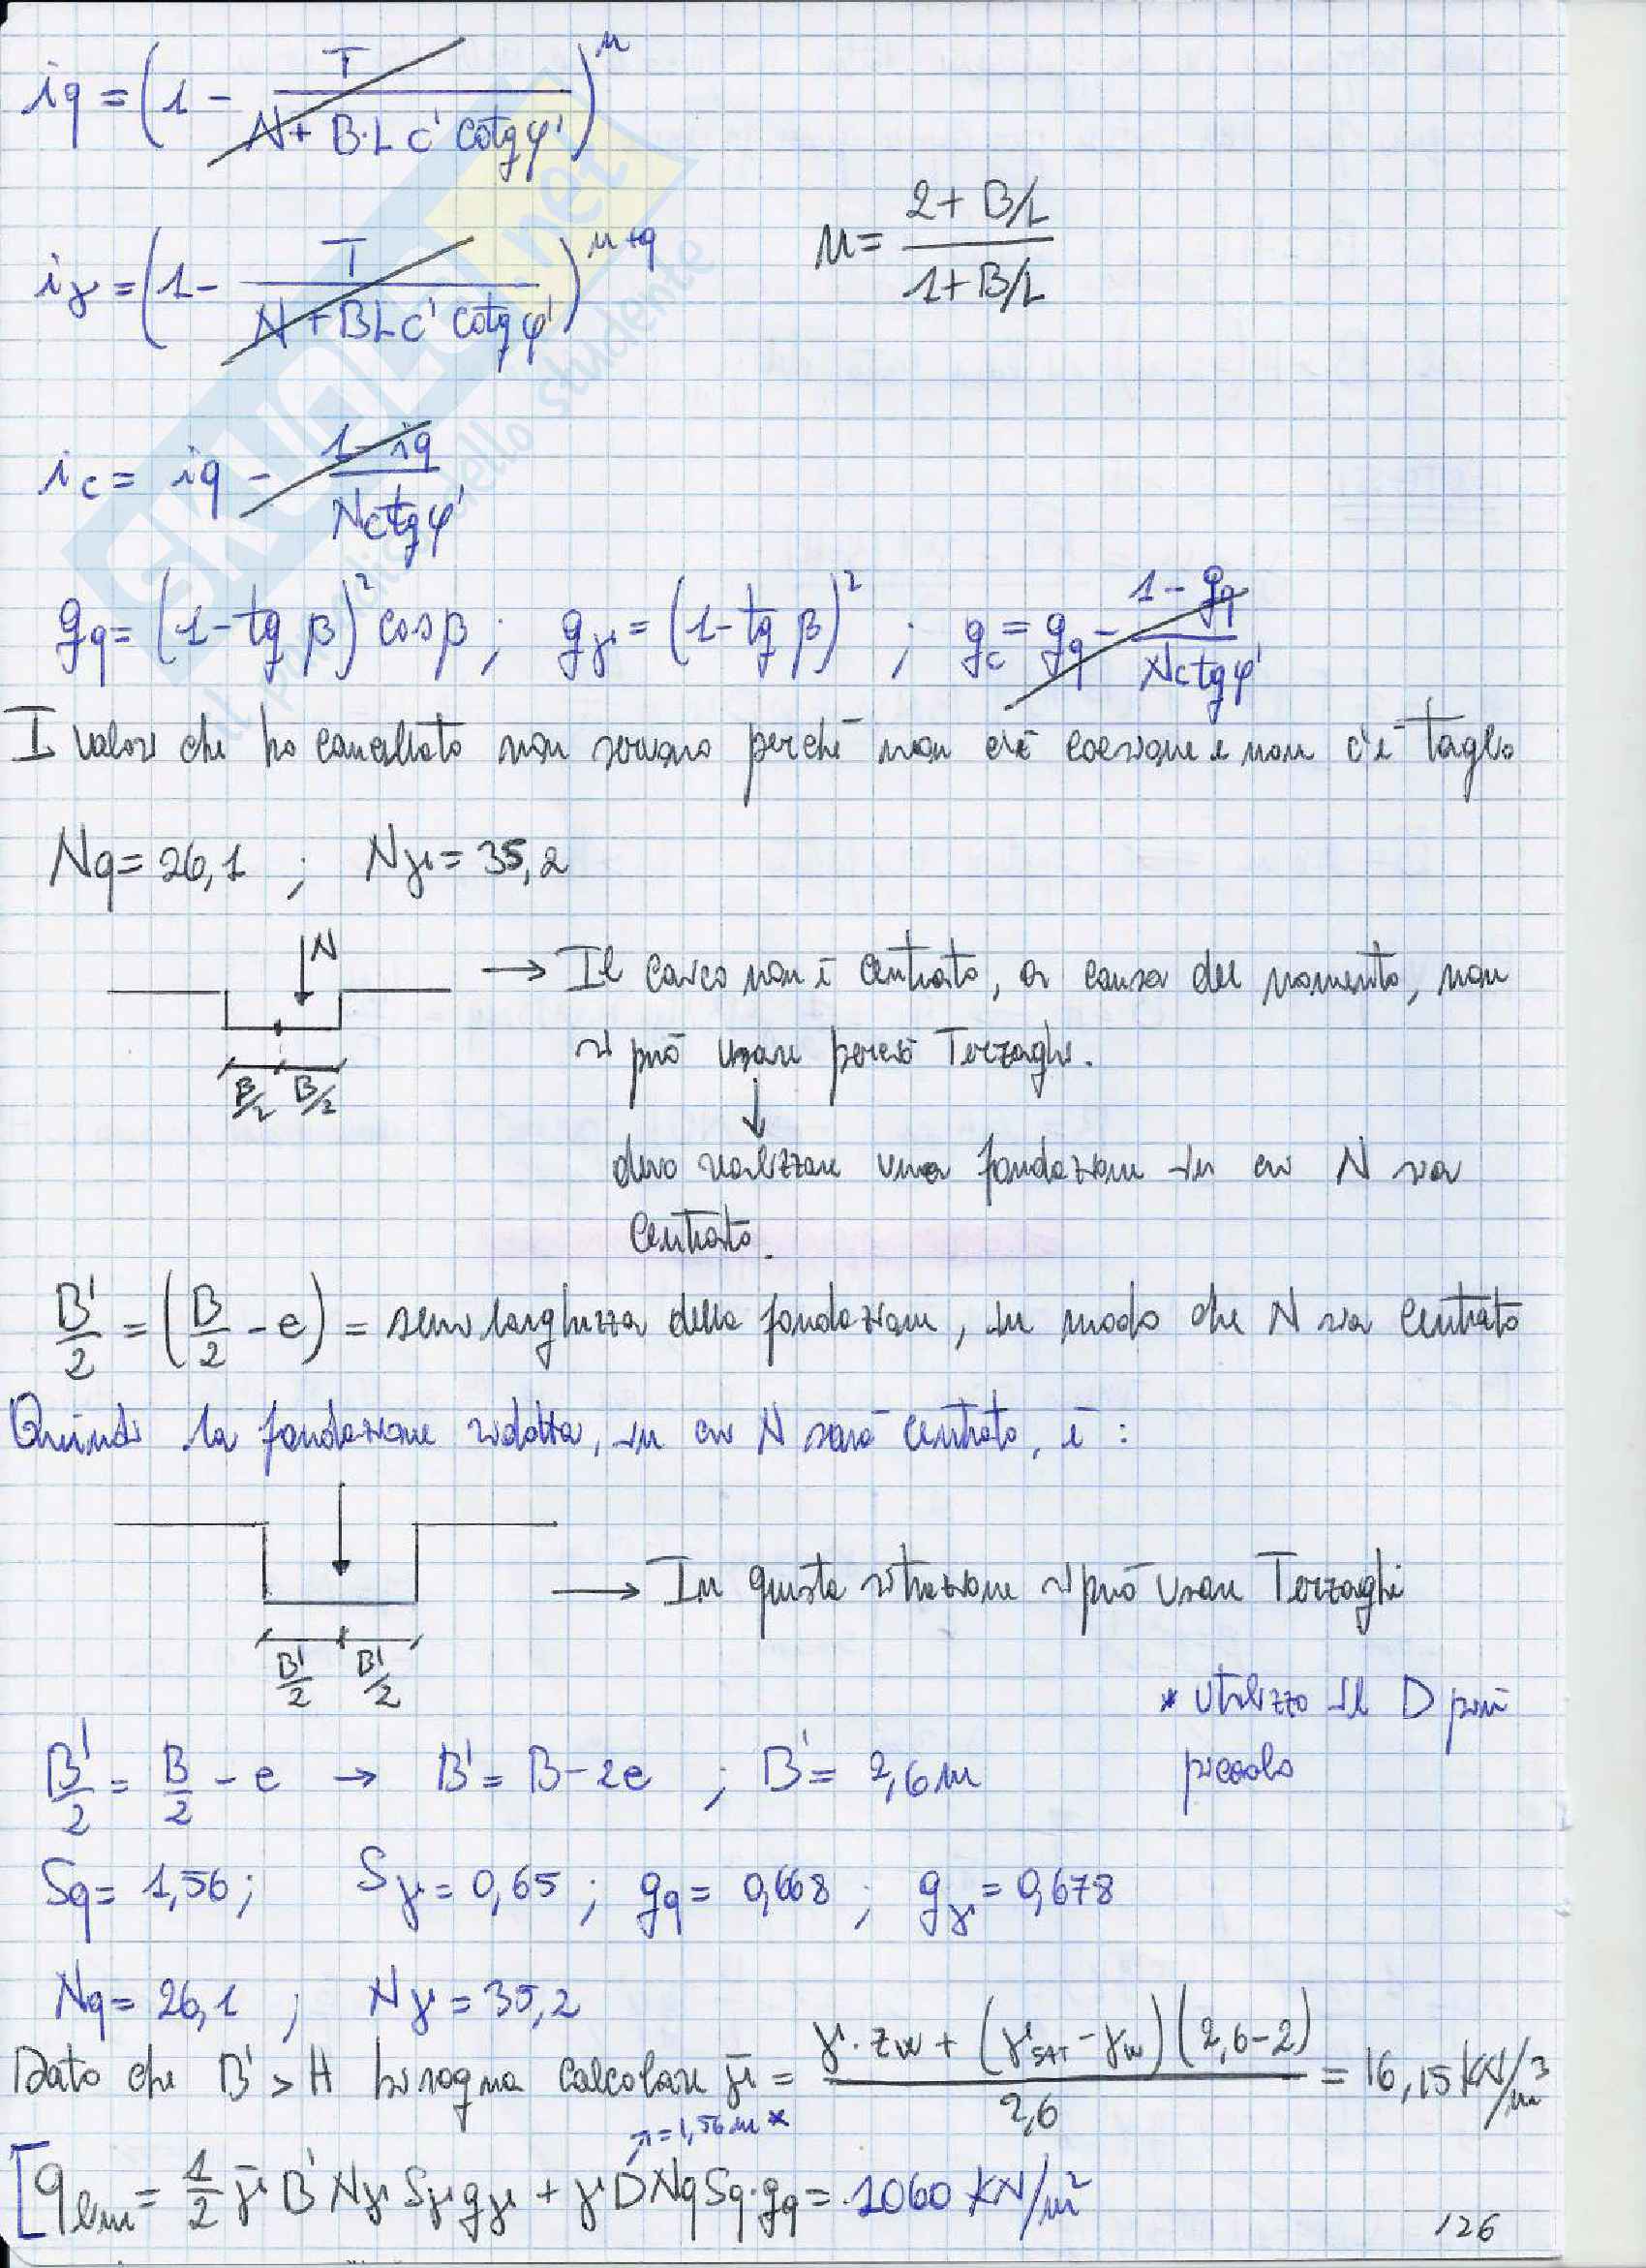 iq = (1 - T / (N + B·L c' cotgφ'))^μ
iγ = (1 - T / (N + BLc' cotgφ'))^(μ+q)
μ = (2 + B/L) / (1 + B/L)
ic = iq - (1 - iq) / (Nctgφ')
gq = (1 - tg β)² cosβ ; gγ = (1 - tg β)² ; gc = gq - (1 - gq) / (Nctgφ')
I valori che ho cancellato non servono perché non c'è coesione e non c'è taglio
Nq = 26,1 ; Nγ = 35,2
N
B/2 B/2
→ Il carico non è centrato, a causa del momento, non
si può usare perciò Terzaghi.
↓
devo realizzare una fondazione in cui N sia
centrato.
B'/2 = (B/2 - e) = semilarghezza della fondazione, in modo che N sia centrato
Quindi la fondazione ridotta, in cui N sarà centrato, è :
B'/2 B'/2
→ In questa situazione si può usare Terzaghi
* utilizzo il D più
piccolo
B'/2 = B/2 - e → B' = B - 2e ; B' = 2,6 m
Sq = 1,56 ; Sγ = 0,65 ; gq = 0,668 ; gγ = 0,678
Nq = 26,1 ; Nγ = 35,2
Dato che B' > H bisogna calcolare γ̄ = (γ·zw + (γSAT - γw)(2,6 - 2)) / 2,6 = 16,15 KN/m³
↗ = 1,56 m *
[qlim = 1/2 γ̄ B' Nγ Sγ gγ + γ D Nq Sq·gq = 1060 KN/m²
126
SKUOLA.net
il paradiso dello studente